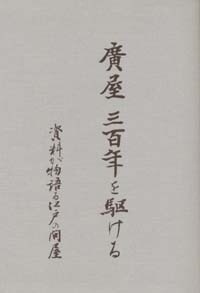 廣屋 三百年を駆ける
資料が物語る江戸の問屋